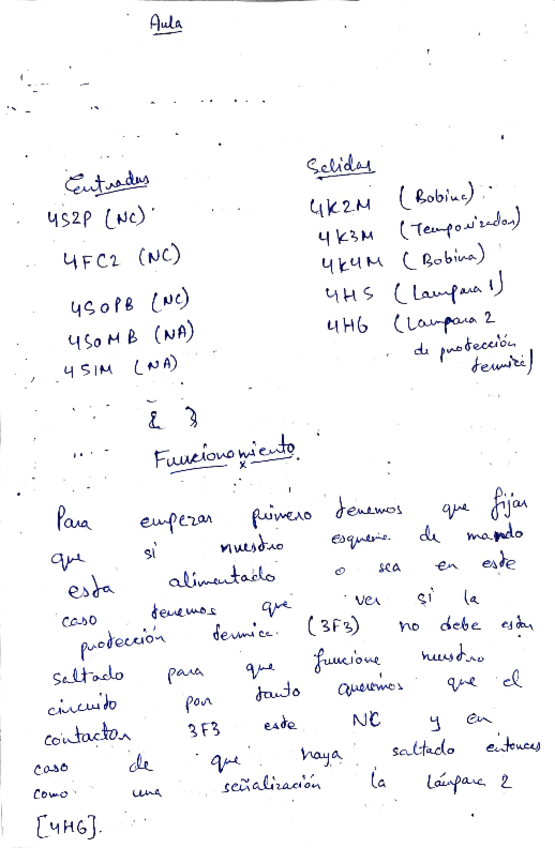 Aula
Entradas
4S2P (NC)
4FC2 (NC)
4S0PB (NC)
4S0MB (NA)
4S1M (NA)
Selidas
4K2M (Bobina)
4K3M (Temporizador)
4K4M (Bobina)
4H5 (Lampara 1)
4H6 (Lampara 2
de protección
termica)
{ }
Funcionamiento
Para empezar primero tenemos que fijar
que si nuestro esquema de mando
esta alimentado o sea en este
caso tenemos que ver si la
protección termica (3F3) no debe estar
saltado para que funcione nuestro
circuito por tanto queremos que el
contactor 3F3 este NC y en
caso de que haya saltado entonces
como una señalización la Lámpara 2
[4H6].